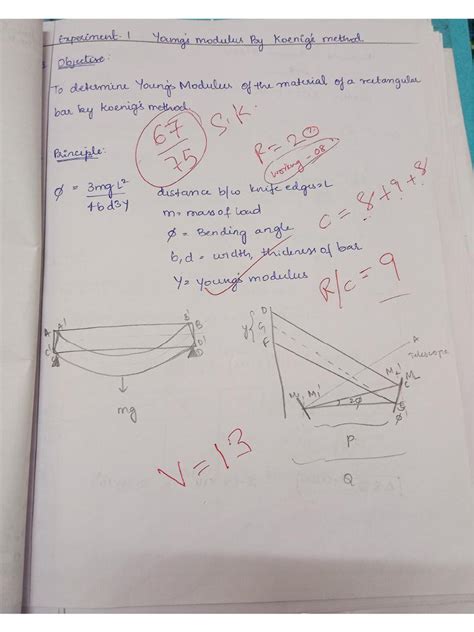 Experiment-1 Young's modulus By Koenig's method
Objective:
To determine Young's Modulus of the material of a rectangular
bar by Koenig's method
67
75
S.K.
R = 20
working - 08
Principle:
φ = 3mgL²
4bd³Y
distance b/w knife edges = L
m = mass of load
φ = Bending angle
b, d = width, thickness of bar
Y = Young's modulus
C = 8+9+8
R/C = 9
A A' B' B
C' D' D
mg
D
y G
F
A
telescope
M₁ M₁' M₂' M₂
C
2φ
P
Q
V = 13